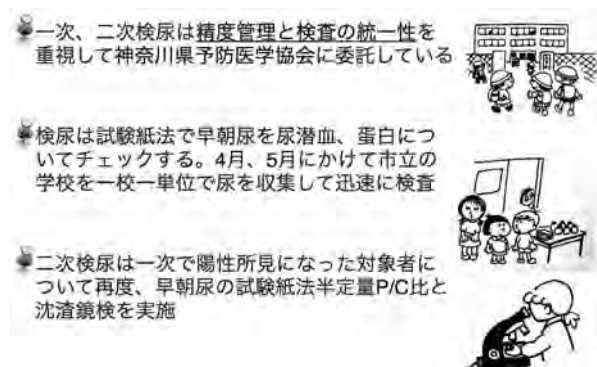 一次、二次検尿は精度管理と検査の統一性を
重視して神奈川県予防医学協会に委託している
検尿は試験紙法で早朝尿を尿潜血、蛋白につ
いてチェックする。4月、5月にかけて市立の
学校を一校一単位で尿を収集して迅速に検査
二次検尿は一次で陽性所見になった対象者に
ついて再度、早朝尿の試験紙法半定量P/C比と
沈渣鏡検を実施